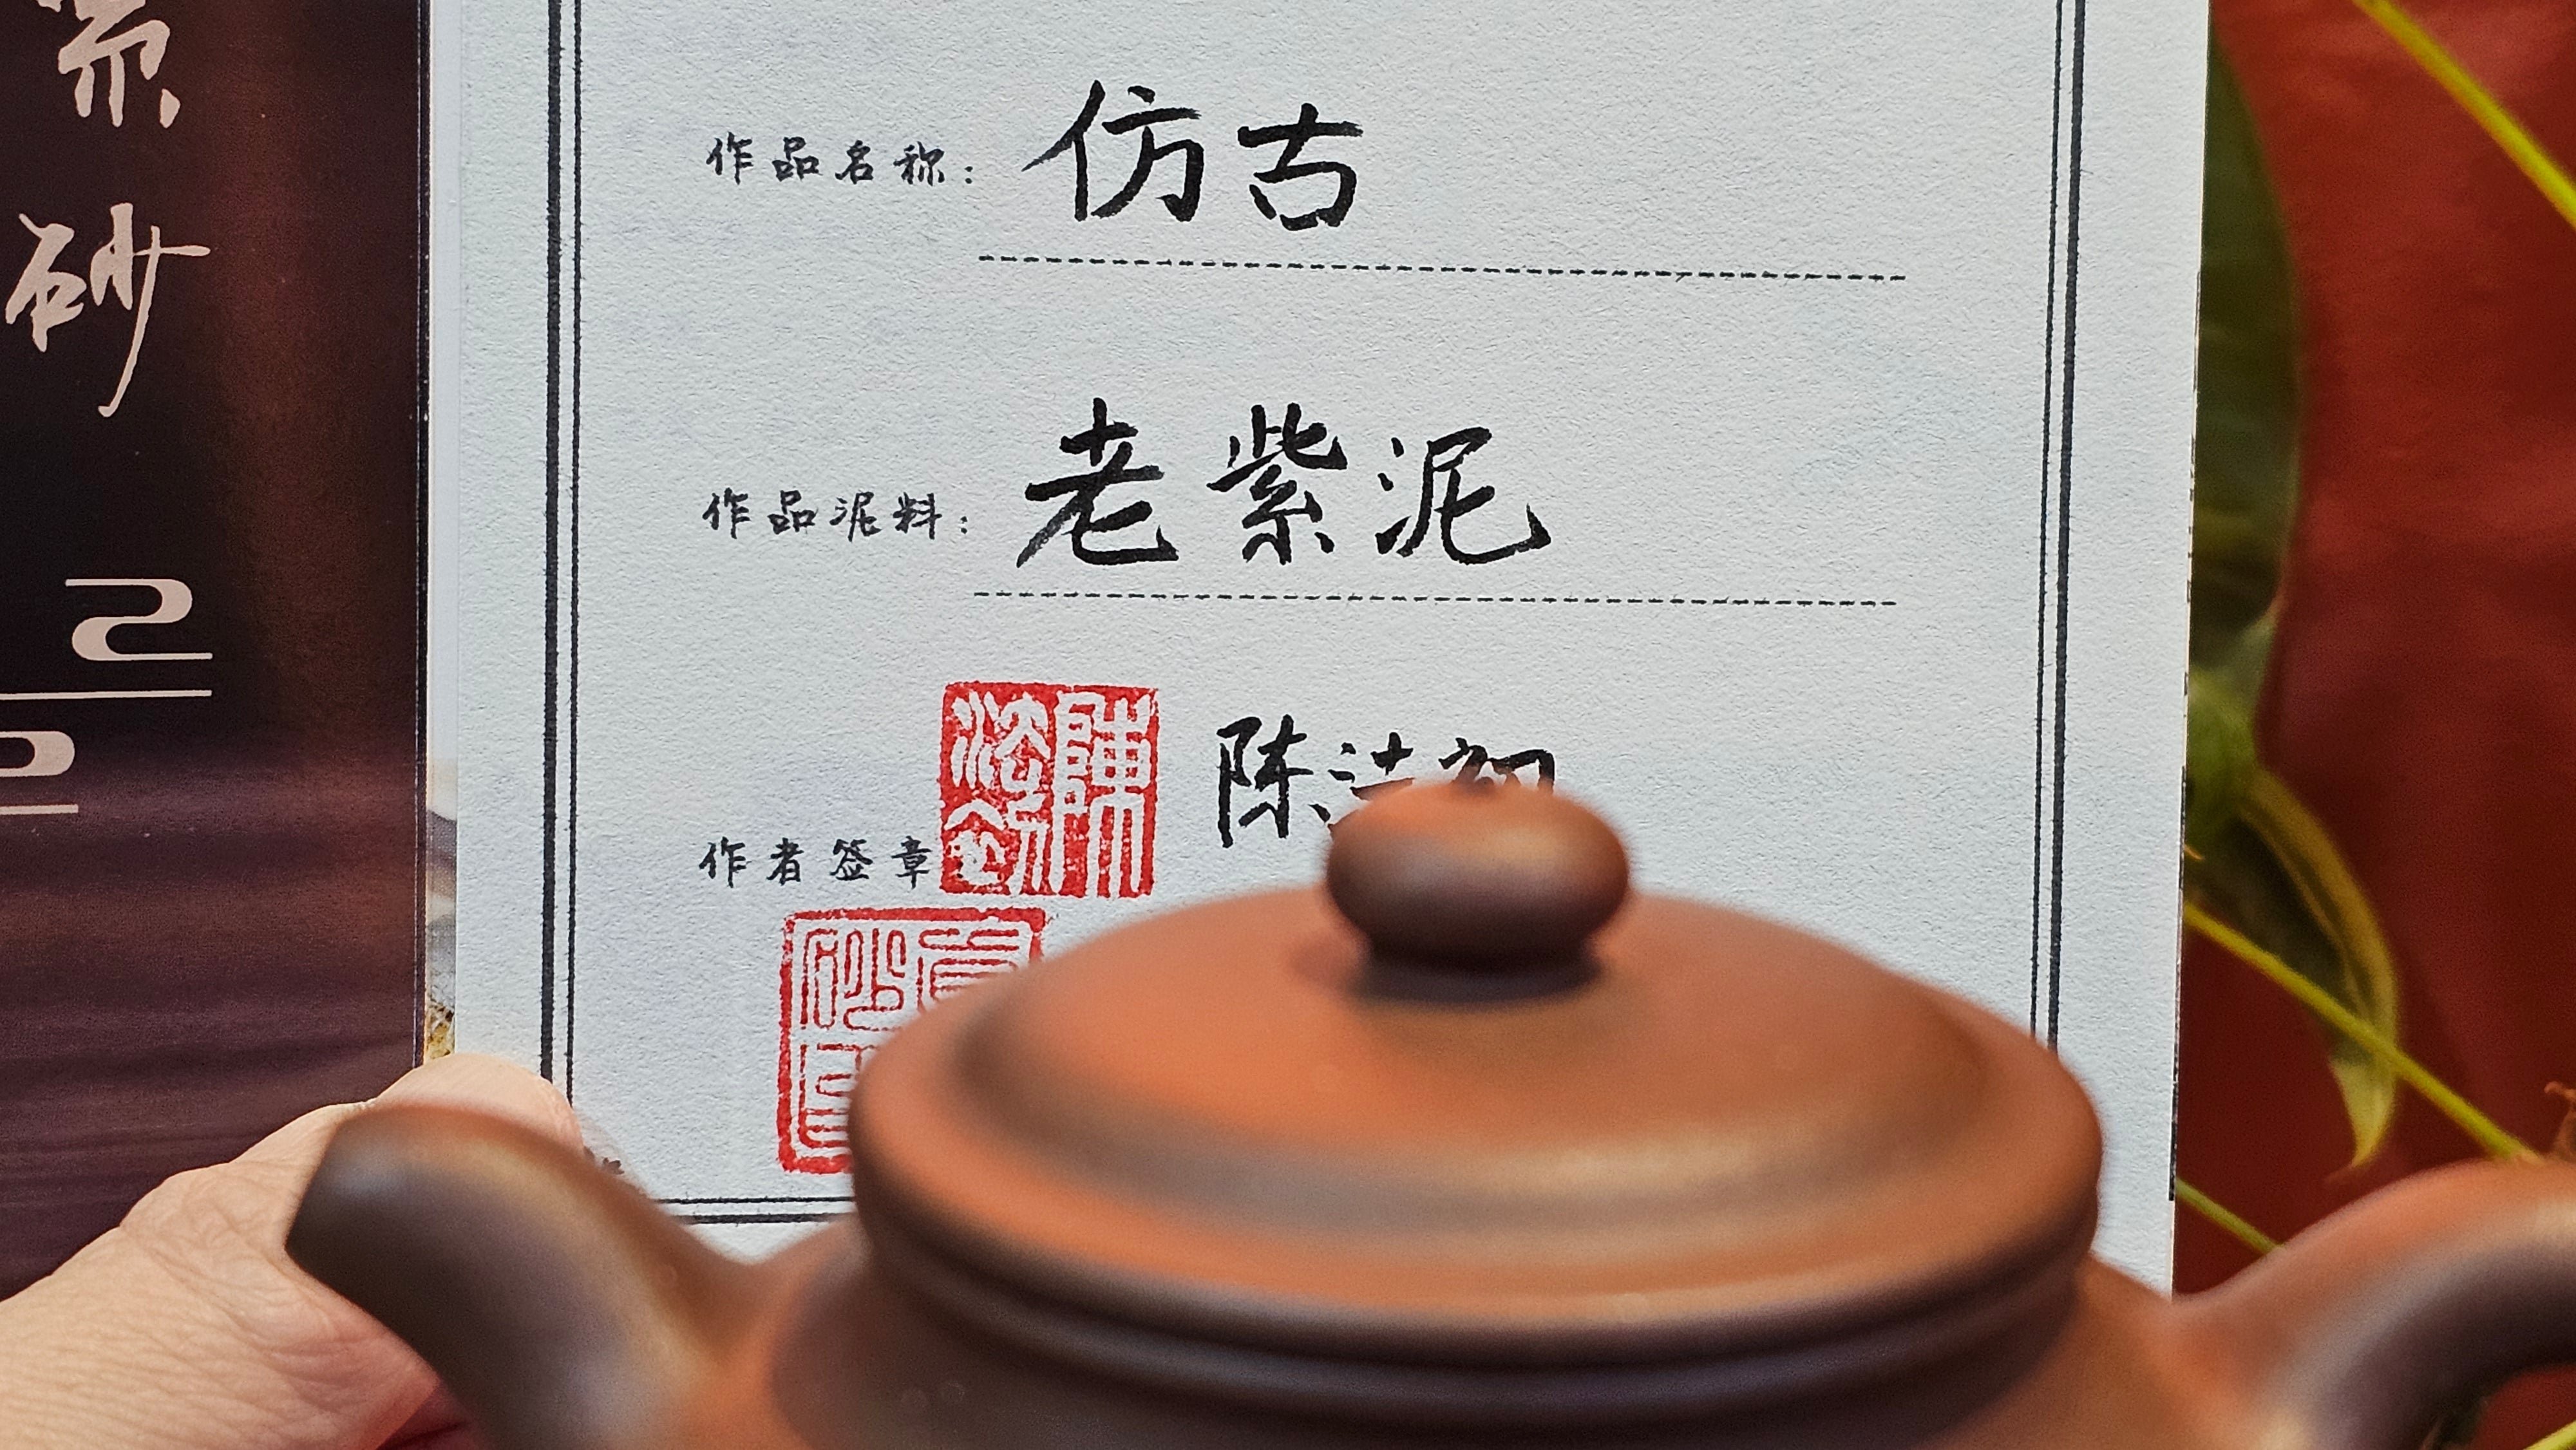 紫砂
作品名称：仿古
作品泥料：老紫泥
作者签章 陳 陈
砂